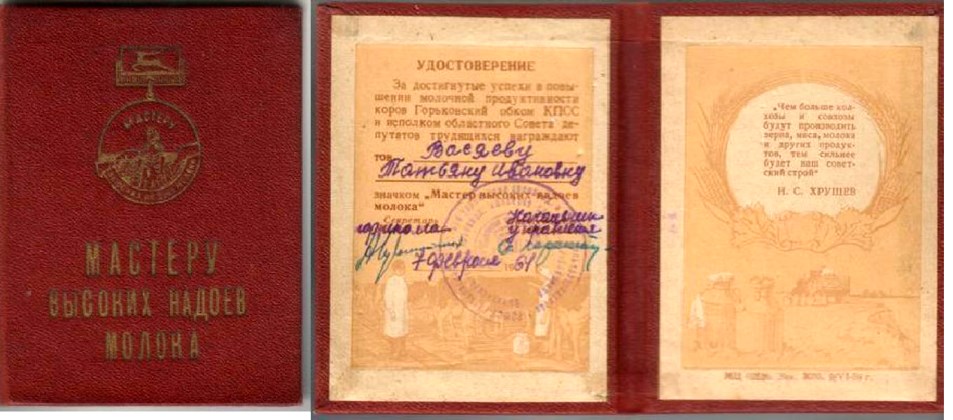 МАСТЕРУ
МАСТЕРУ
ВЫСОКИХ НАДОЕВ
МОЛОКА
УДОСТОВЕРЕНИЕ
За достигнутые успехи в повы-
шении молочной продуктивности
коров Горьковский обком КПСС
и исполком областного Совета де-
путатов трудящихся награждают
тов. Васяеву
Татьяну Ивановну
значком „Мастер высоких надоев
молока“
Секретарь
Начальник
управления
7 февраля 61
„Чем больше кол-
хозы и совхозы
будут производить
зерна, мяса, молока
и других продук-
тов, тем сильнее
будет наш совет-
ский строй“
Н. С. ХРУЩЕВ